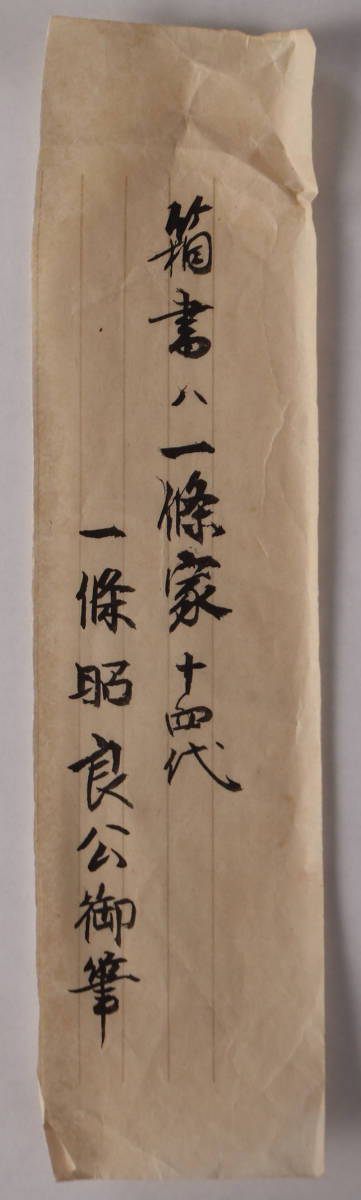 箱書ハ一條家十四代
一條昭良公御筆